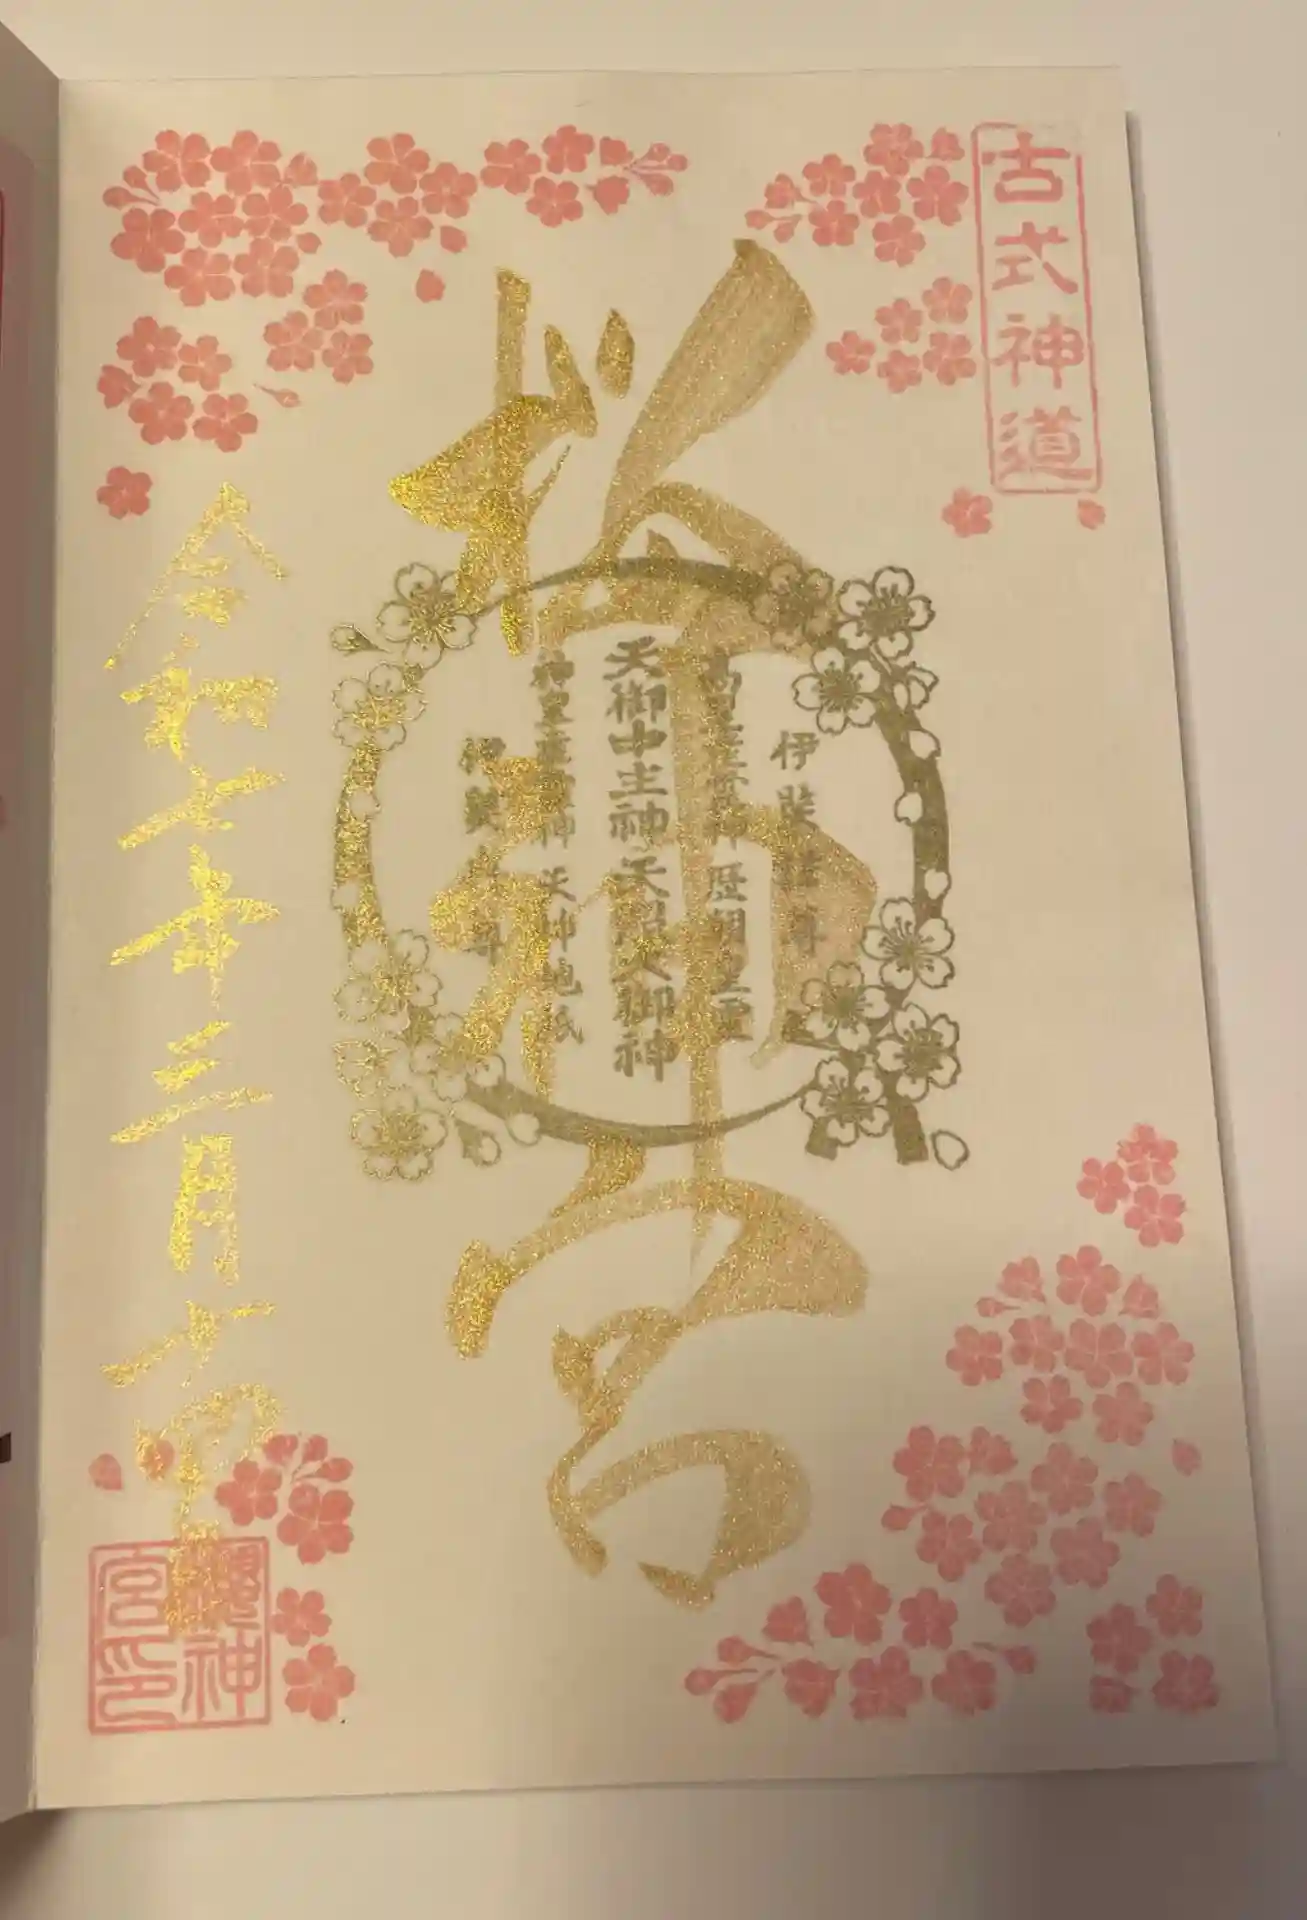 古式神道
桜神宮
伊弉諾尊
高皇産霊神 歴朝皇霊
天御中主神 天照大御神
神皇産霊神 天神地祇
伊弉冉尊
令和七年三月十四日
櫻神宮印